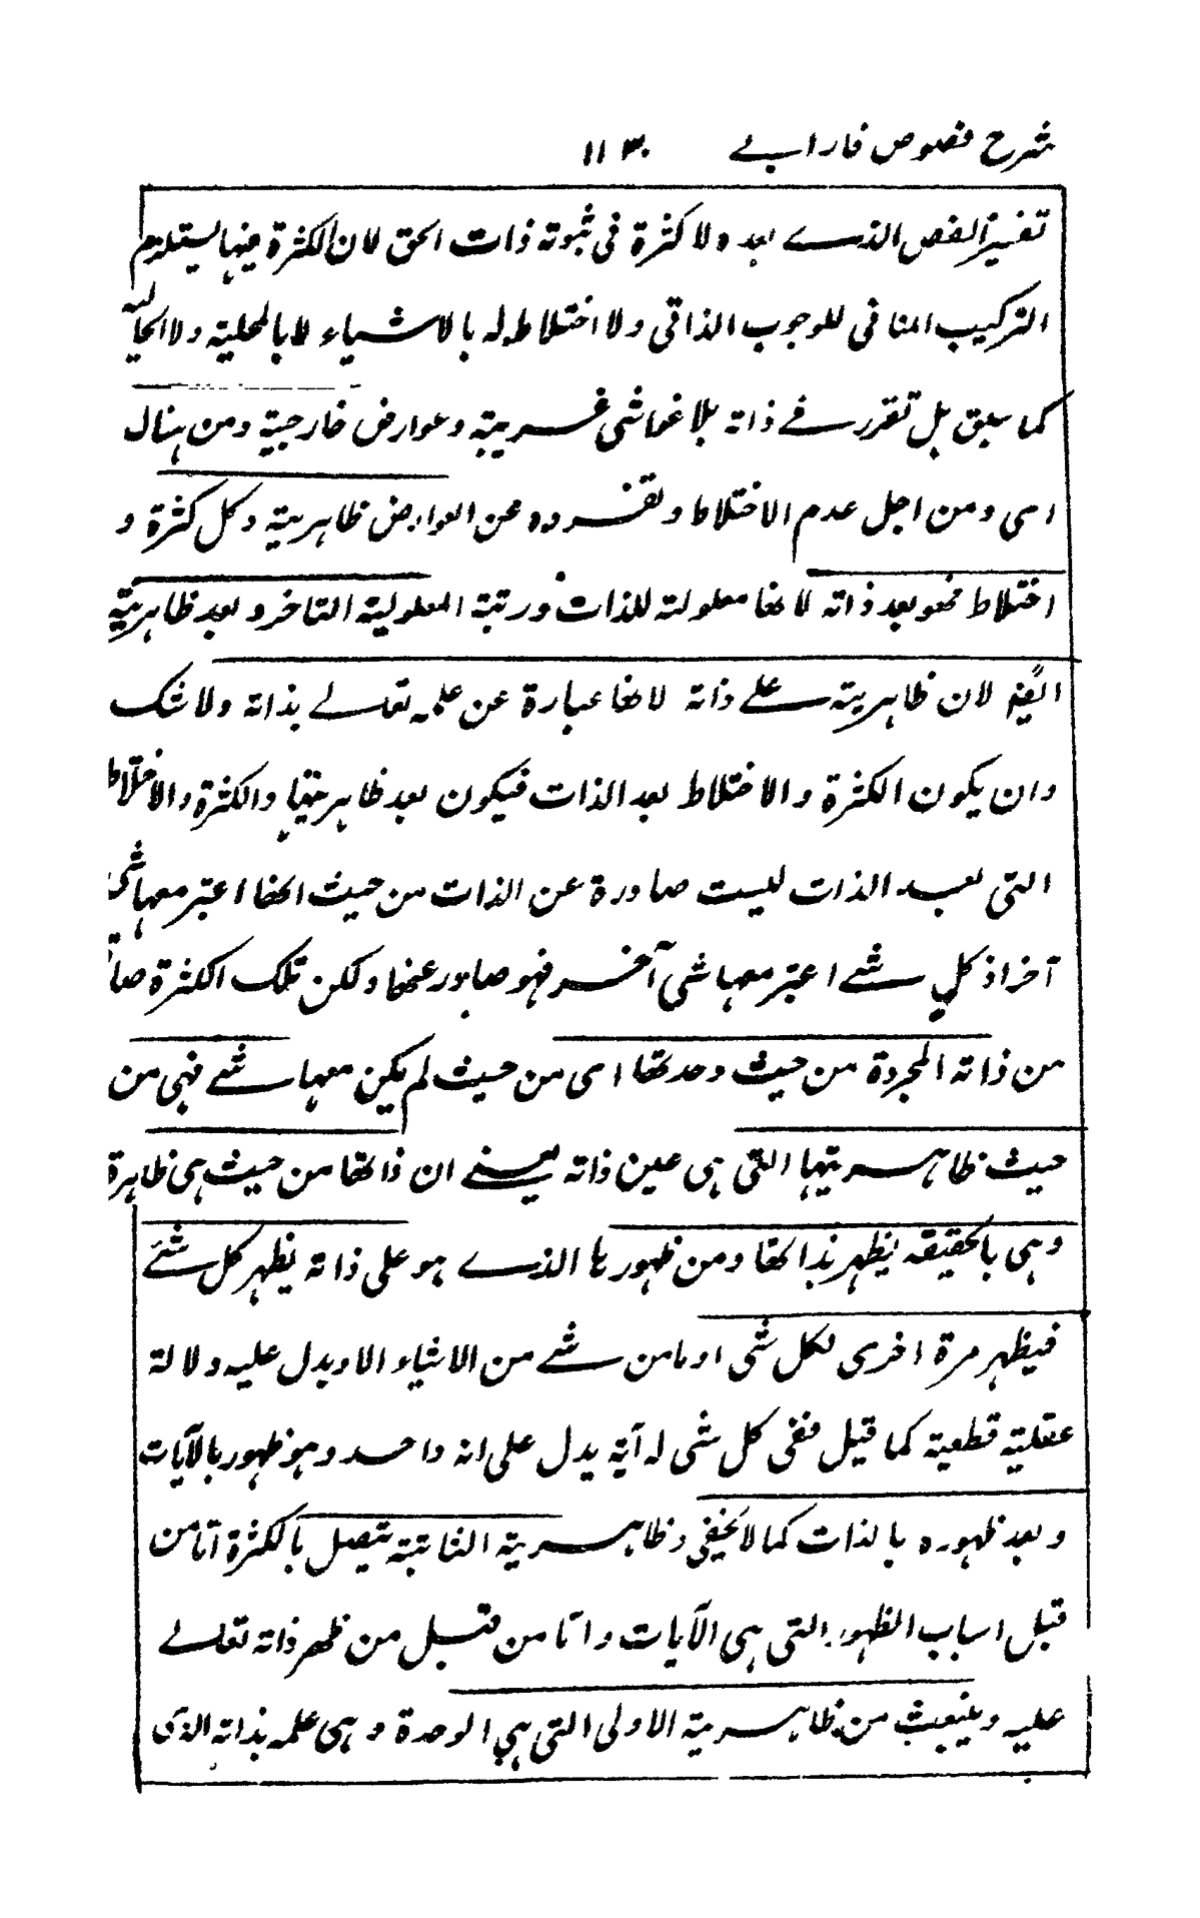 شرح فصوص فارابے ١١٣
تفسير الفص الذے بعد ولا كثرة فى ثبوته ذات الحق لان الكثرة فيها يستلزم
التركيب المنافى للوجوب الذاتى ولا اختلاط له بالاشياء لا بالمحلية ولا الحالية
كما سبق بل تقرر فے ذاته بلا غواشى غريبة وعوارض خارجية ومن هنال
اى ومن اجل عدم الاختلاط وتفرده عن العوارض ظاهرية وكل كثرة و
اختلاط فهو بعد ذاته لانها معلولة للذات ورتبة المعلولية التاخر وبعد ظاهريته
ايضا لان ظاهريته علے ذاته لانها عبارة عن علمه تعالے بذاته ولا شك
وان يكون الكثرة والاختلاط بعد الذات فيكون بعد ظاهريتها والكثرة والاختلاط
التى بعد الذات ليست صادرة عن الذات من حيث انها اعتبر معها شئ
آخر اذ كل شے اعتبر معها شى آخر فهو صادر عنها ولكن تلك الكثرة صا
من ذاته المجردة من حيث وحدتها اى من حيث لم يكن معها شے فهى من
حيث ظاهريتها التى هى عين ذاته يعنے ان ذاتها من حيث هى ظاهرة
وهى بالحقيقه يظهر بذاتها ومن ظهورها الذے هو على ذاته يظهر كل شئے
فيظهر مرة اخرى لكل شى اذ ما من شے من الاشياء الا ويدل عليه دلالة
عقلية قطعية كما قيل ففى كل شى له آية يدل على انه واحد وهو ظهور بالآيات
وبعد ظهوره بالذات كما لا يخفى وظاهرية الثانية يتصل بالكثرة اما من
قبل اسباب الظهور التى هى الآيات واما من قبل من ظهر ذاته تعالے
عليه وينبعث من ظاهرية الاولى التى هى الوحدة وهى علمه بذاته الذى